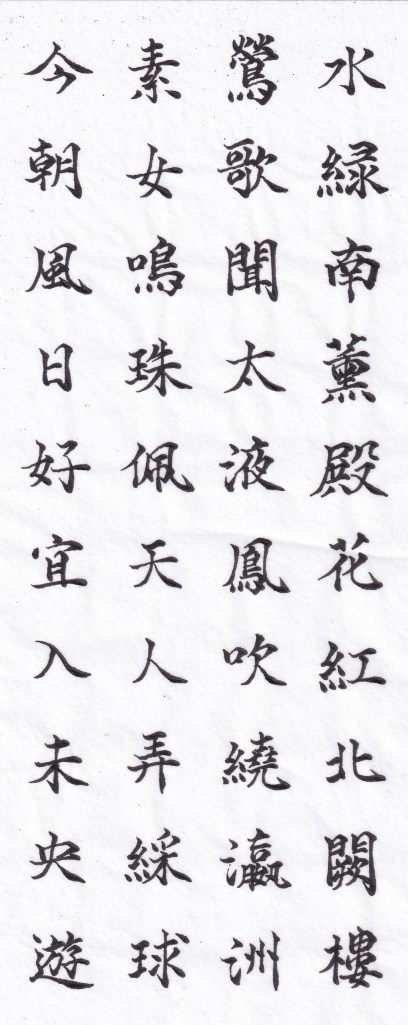 水緑南薫殿花紅北闕樓
鶯歌聞太液鳳吹繞瀛洲
素女鳴珠佩天人弄綵球
今朝風日好宜入未央遊